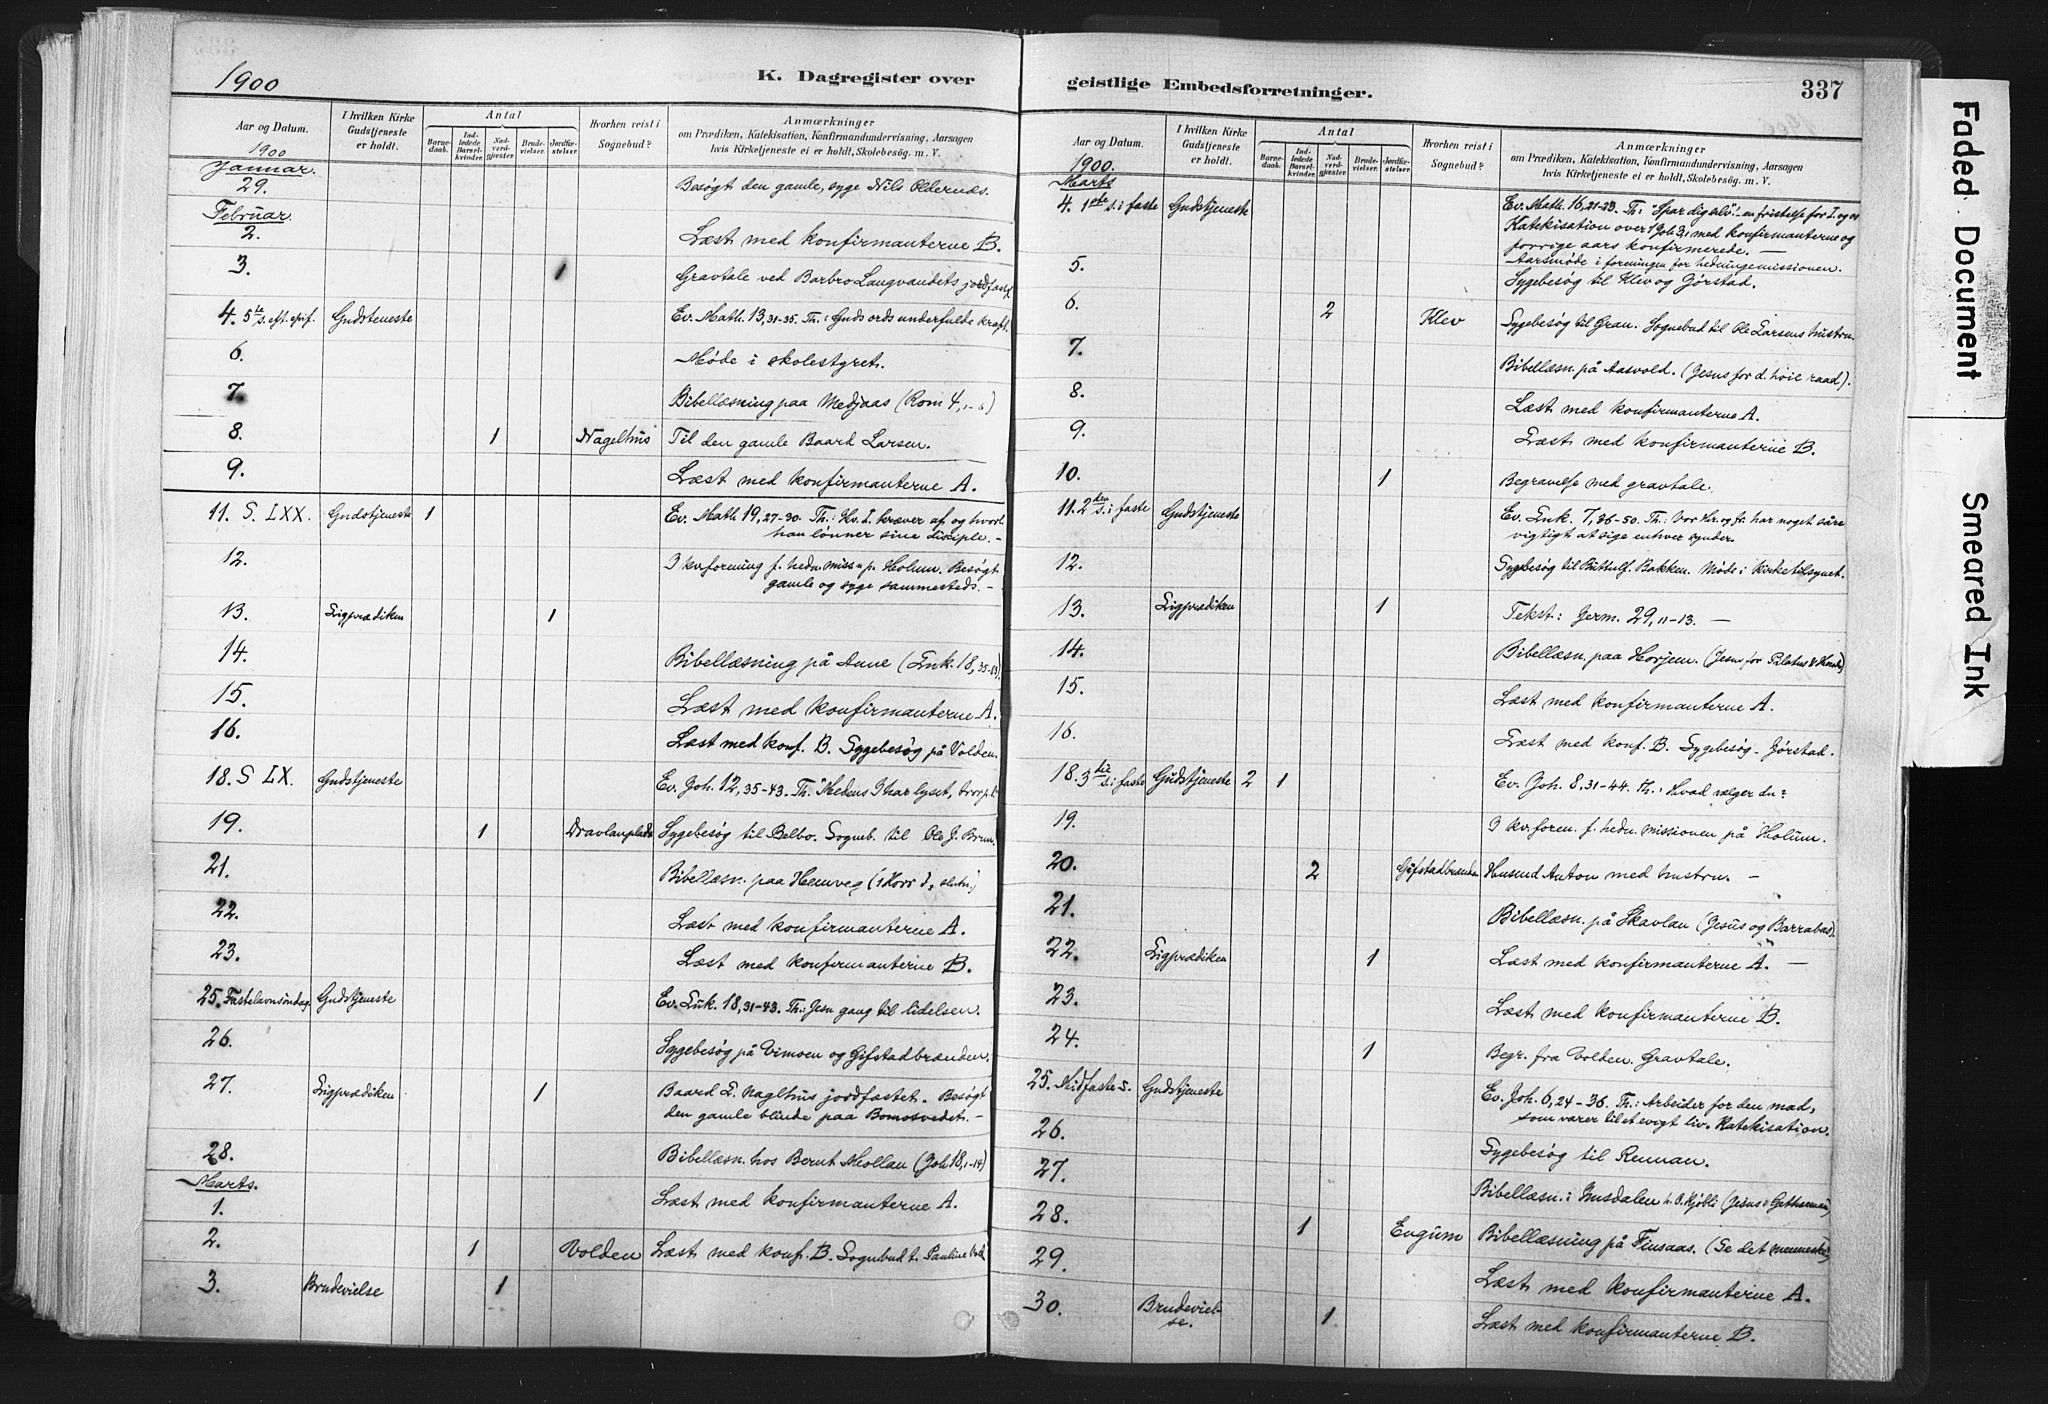 1900
K. Dagregister over
Aar og Datum.
I hvilken Kirke Gudstjeneste er holdt.
Antal
Barnedaab.
Indledede Barselkvinder.
Nadverdgjester
Brudevielser.
Jordfæstelser
Hvorhen reist i Sognebud?
Anmærkninger
om Prædiken, Katekisation, Konfirmandundervisning, Aarsagen
hvis Kirketjeneste ei er holdt, Skolebesøg. m. V.
1900
Januar.
29. Besøgt den gamle, syge Nils Oldernæs.
Februar.
2. Læst med konfirmanterne B.
3. 1 Gravtale ved Barbro Langvandets jordfæst.
4. 5te s. eft. epif. Gudsteneste Ev. Math. 13,31-35. Th.: Guds ords underfulde kraft.
6. Møde i skolestyret.
7. Bibellæsning paa Medjaas (Rom 4,
8. 1 Nagelhus Til den gamle Baard Larsen.
9. Læst med konfirmanterne A.
11. S. LXX. Gudstjeneste 1 Ev. Math 19,27-30. Th.: Hv. J. kræver af og hvorl.
han lønner sine disciple. -
12. 3 kv.forening f. hedn. miss. p. Holum. Besøgt
gamle og syge sammesteds. -
13. Ligprædiken 1
14. Bibellæsning på Aune (Luk. 18,35-43).
15. Læst med konfirmanterne A.
16. Læst med konf. B. Sygebesøg på Volden.
18. S LX. Gudstjeneste Ev. Joh. 12,35-43. Th. "Medens I har lyset, tror p. l."
19. 1 Dravlanplads Sygebesøg til Belbo. Sogneb. til Ole J. Brun.
21. Bibellæsn. paa Hemveg
22. Læst med konfirmanterne A.
23. Læst med konfirmanterne B.
25. Fastelavnsøndag Gudstjeneste Ev. Luk. 18,31-43. Th.: Jesu gang til lidelsen.
26. Sygebesøg på Vimoen og Gifstadbrænden.
27. Ligprædiken 1 Baard L. Naglhus jordfæstet. Besøgt
den gamle blinde paa Bomosvedet. -
28. Bibellæsn. hos Bernt Mollan (Joh 18,1-14)
Marts.
1. Læst med konfirmanterne A.
2. 1 Volden Læst med konf. B. Sognebud t. Pauline Vold.
3. Brudevielse 1
geistlige Embedsforretninger.
337
Aar og Datum.
I hvilken Kirke Gudstjeneste er holdt.
Antal
Barnedaab.
Indledede Barselkvinder.
Nadverdgjester
Brudevielser.
Jordfæstelser.
Hvorhen reist i Sognebud?
Anmærkninger
om Prædiken, Katekisation, Konfirmandundervisning, Aarsagen
hvis Kirketjeneste ei er holdt, Skolebesøg. m. V.
1900.
Marts
4. 1ste s. i faste Gudstjeneste Ev. Math. 16,21-23. Th: "Spar dig selv" - en fristelse for J. og os
Katekisation over 1 Joh 3, med konfirmanterne og
forrige aars konfirmerede. -
5. Aarsmøde i foreningen for hedningemissionen.
Sygebesøg til Klev og Gjørstad.
6. 2 Klev Sygebesøg til Gran. Sognebud til Ole Larsens hustru.
7. Bibellæsn. på Aasvold. (Jesus for d. høie raad).
8. Læst med konfirmanterne A.
9. Læst med konfirmanterne B.
10. 1 Begravelse med gravtale.
11. 2den s. i faste Gudstjeneste Ev. Luk. 7,36-50. Th: Vor Hr. og fr. har noget såre
vigtigt at sige enhver synder.
12. Sygebesøg til Buttulf Bakken. Møde i Kirketilsynet.
13. Ligprædiken 1 Tekst: Jerm. 29,11-13. -
14. Bibellæsn. paa Horjem. (Jesus for Pilatus & Herodes)
15. Læst med konfirmanterne A.
16. Læst med konf. B. Sygebesøg - Jørstad.
18. 3die s. i faste Gudstjeneste 2 1 Ev. Joh. 8,31-44. Th.: Hvad vælger du?
19. 3 kv.foren. f. hedn. missionen på Holum.
20. 2 Gifstadbrænden Husmd Anton med hustru. -
21. Bibellæsn. på Skavlan (Jesus og Barrabas).
22. Ligprædiken 1 Læst med konfirmanterne A. -
23. Læst med konfirmanterne B.
24. 1 Begr. fra Volden. Gravtale.
25. Midfaste s. Gudstjeneste Ev. Joh. 6,24-36. Th.: Arbeider for den mad,
som varer til et evigt liv. Katekisation.
26. Sygebesøg til Rennan.
27. Bibellæsn. i Imsdalen h. O. Kjøbli (Jesus i Gethseman)
28. 1 Engum Bibellæsning på Finsaas. (Se det menneske)
29. Læst med konfirmanterne A.
30. Brudeviel-
se. 1 Læst med konfirmanterne B.
Faded Document
Smeared Ink